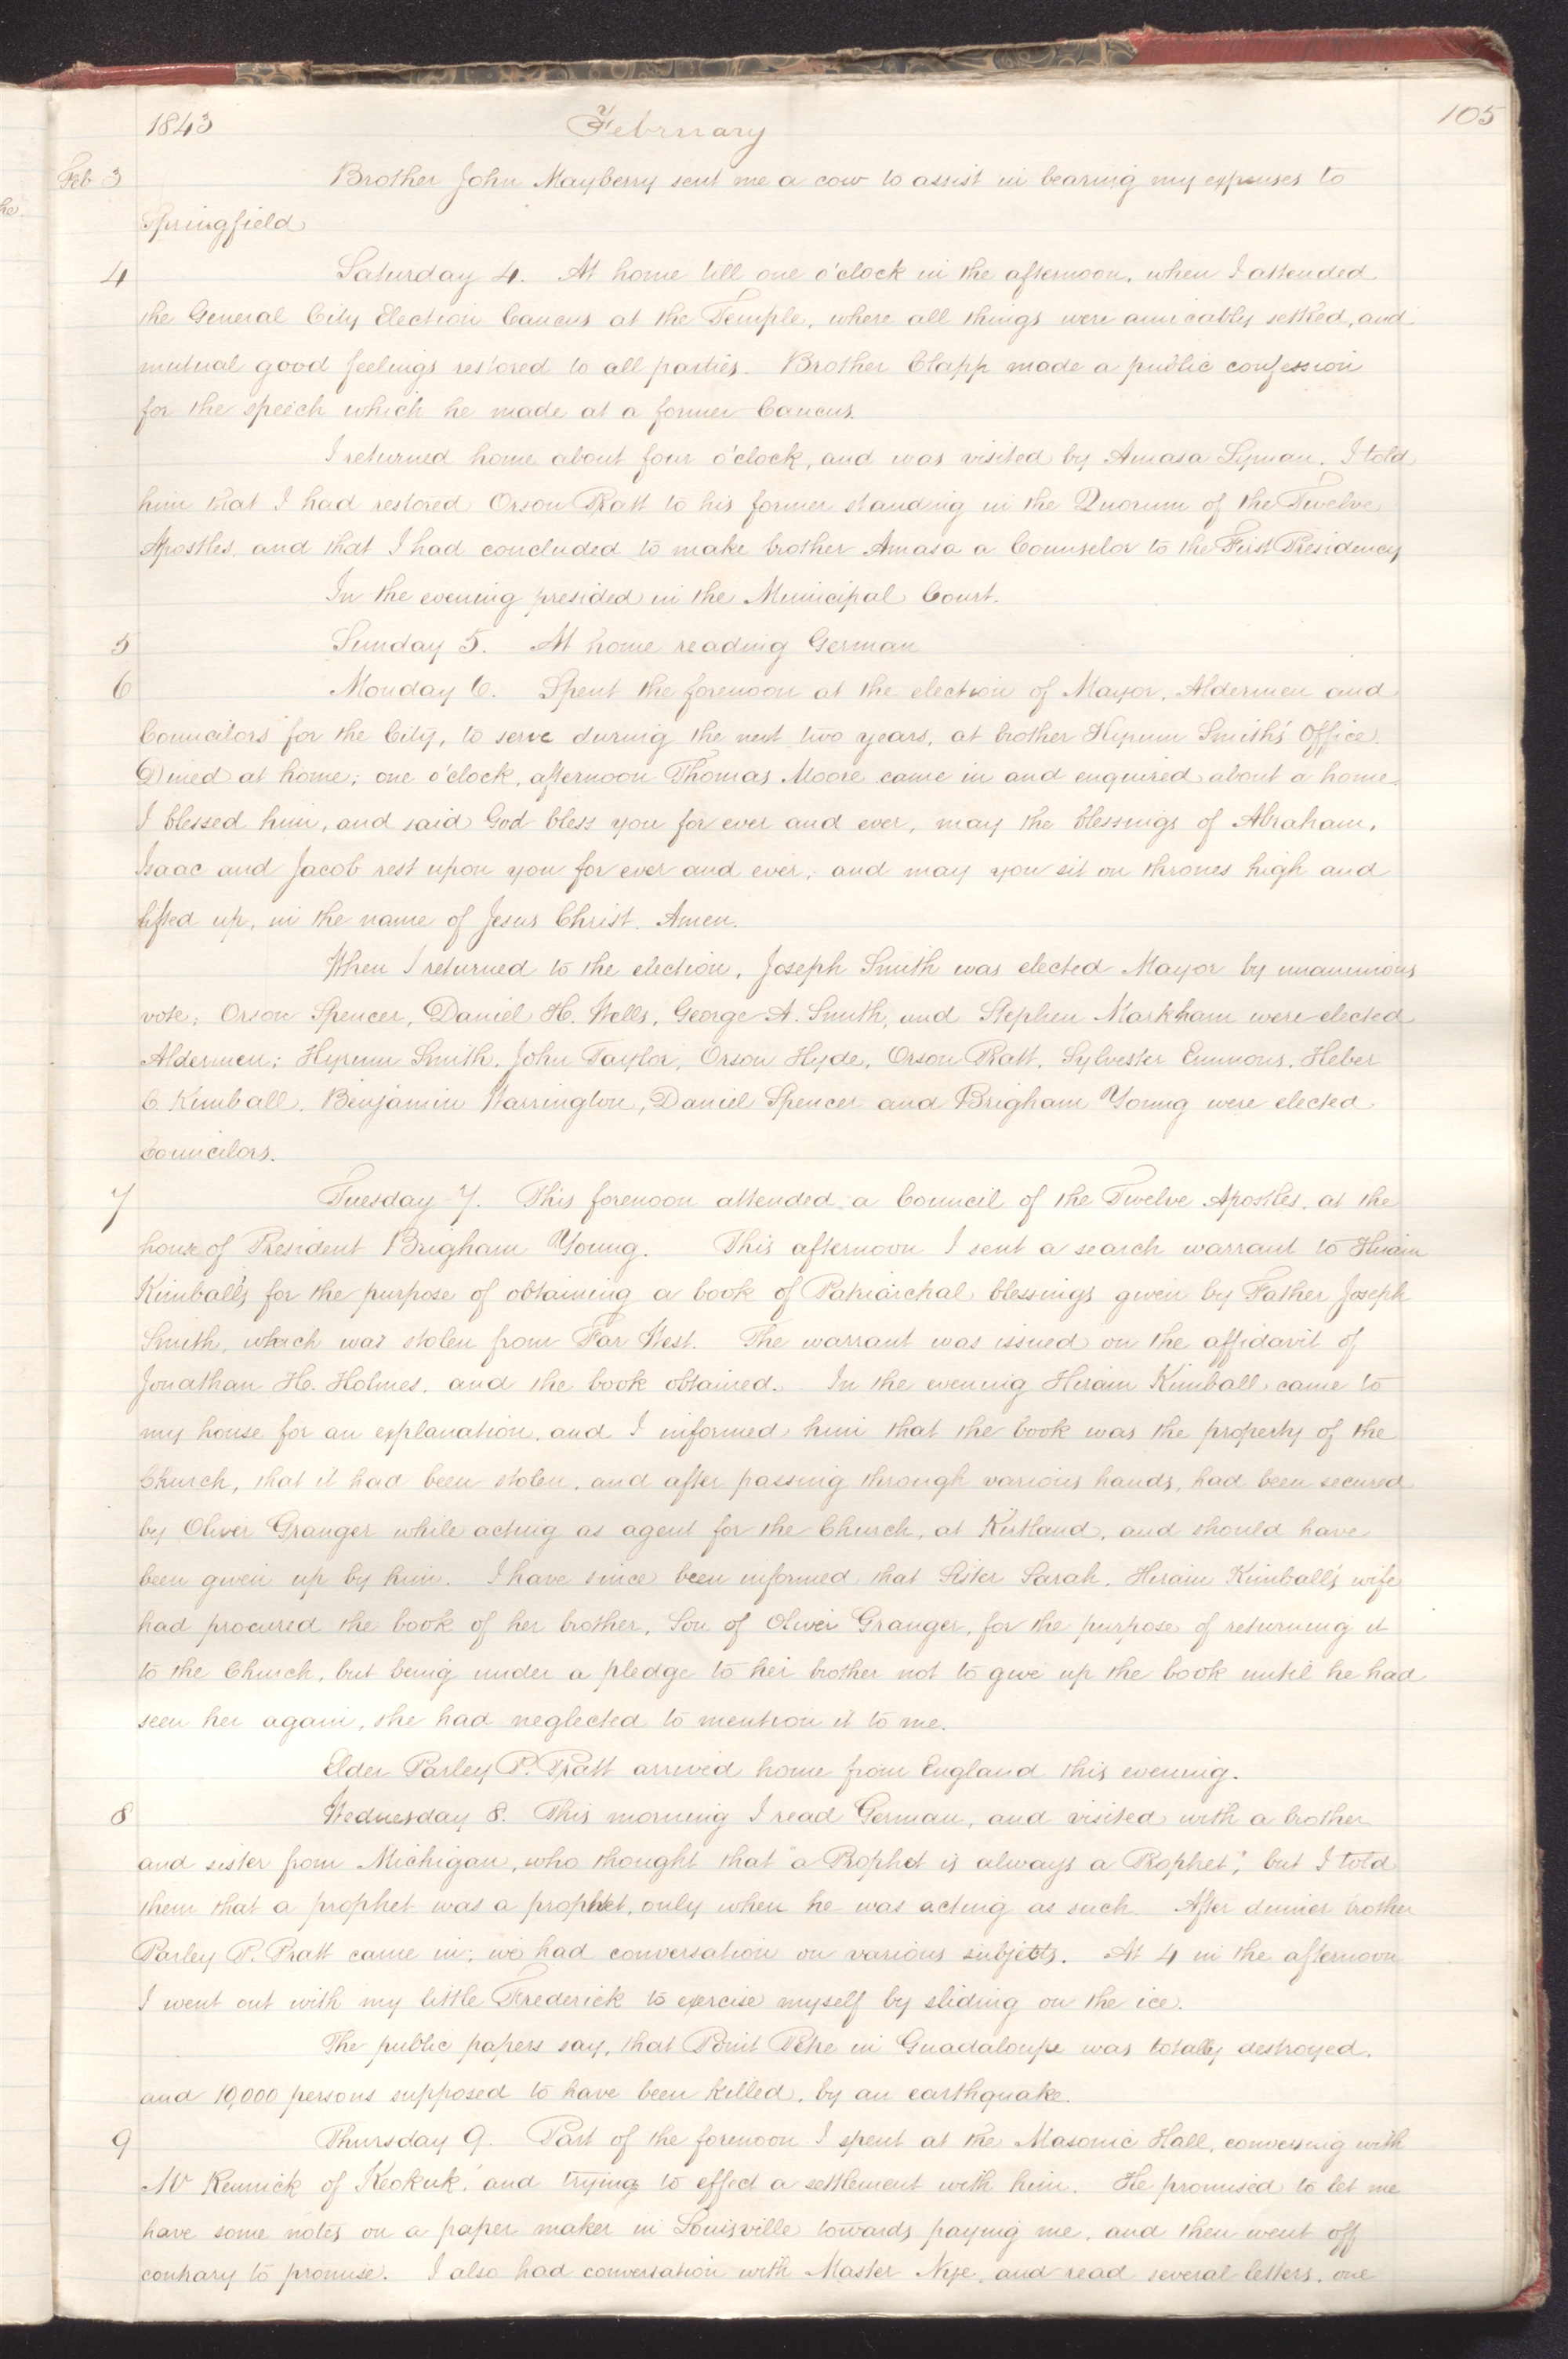 he
1843 February 105
Feb 3 Brother John Mayberry sent me a cow to assist in bearing my expenses to
Springfield
4 Saturday 4. At home till one o'clock in the afternoon, when I attended
the General City Election Caucus at the Temple, where all things were amicably settled, and
mutual good feelings restored to all parties. Brother Clapp made a public confession
for the speech which he made at a former Caucus.
I returned home about four o'clock, and was visited by Amasa Lyman. I told
him that I had restored Orson Pratt to his former standing in the Quorum of the Twelve
Apostles, and that I had concluded to make brother Amasa a Counselor to the First Presidency
In the evening presided in the Municipal Court.
5 Sunday 5. At home reading German
6 Monday 6. Spent the forenoon at the election of Mayor, Aldermen and
Councilors for the City, to serve during the next two years, at brother Hyrum Smith's Office.
Dined at home; one o'clock, afternoon Thomas Moore came in and enquired about a home.
I blessed him, and said God bless you for ever and ever, may the blessings of Abraham,
Isaac and Jacob rest upon you for ever and ever; and may you sit on thrones high and
lifted up, in the name of Jesus Christ. Amen.
When I returned to the election, Joseph Smith was elected Mayor by unanimous
vote; Orson Spencer, Daniel H. Wells, George A. Smith, and Stephen Markham were elected
Aldermen; Hyrum Smith, John Taylor, Orson Hyde, Orson Pratt, Sylvester Emmons, Heber
C. Kimball, Benjamin Warrington, Daniel Spencer and Brigham Young were elected
Councilors.
7 Tuesday 7. This forenoon attended a Council of the Twelve Apostles, at the
house of President Brigham Young. This afternoon I sent a search warrant to Hiram
Kimball's for the purpose of obtaining a book of Patriarchal blessings given by Father Joseph
Smith, which was stolen from Far West. The warrant was issued on the affidavit of
Jonathan H. Holmes, and the book obtained. In the evening Hiram Kimball came to
my house for an explanation, and I informed him that the book was the property of the
Church, that it had been stolen, and after passing through various hands, had been secured
by Oliver Granger while acting as agent for the Church, at Kirtland, and should have
been given up by him. I have since been informed that Sister Sarah, Hiram Kimball's wife
had procured the book of her brother, Son of Oliver Granger, for the purpose of returning it
to the Church, but being under a pledge to her brother not to give up the book until he had
seen her again, she had neglected to mention it to me.
Elder Parley P. Pratt arrived home from England this evening.
8 Wednesday 8. This morning I read German, and visited with a brother
and sister from Michigan, who thought that "a Prophet is always a Prophet"; but I told
them that a prophet was a prophet, only when he was acting as such. After dinner brother
Parley P. Pratt came in; we had conversation on various subjects. At 4 in the afternoon
I went out with my little Frederick to exercise myself by sliding on the ice.
The public papers say, that Point Petre in Guadaloupe was totally destroyed,
and 10,000 persons supposed to have been killed, by an earthquake.
9 Thursday 9. Part of the forenoon I spent at the Masonic Hall, conversing with
Mr Remick of Keokuk, and trying to effect a settlement with him. He promised to let me
have some notes on a paper maker in Louisville towards paying me, and then went off
contrary to promise. I also had conversation with Master Nye, and read several letters, one